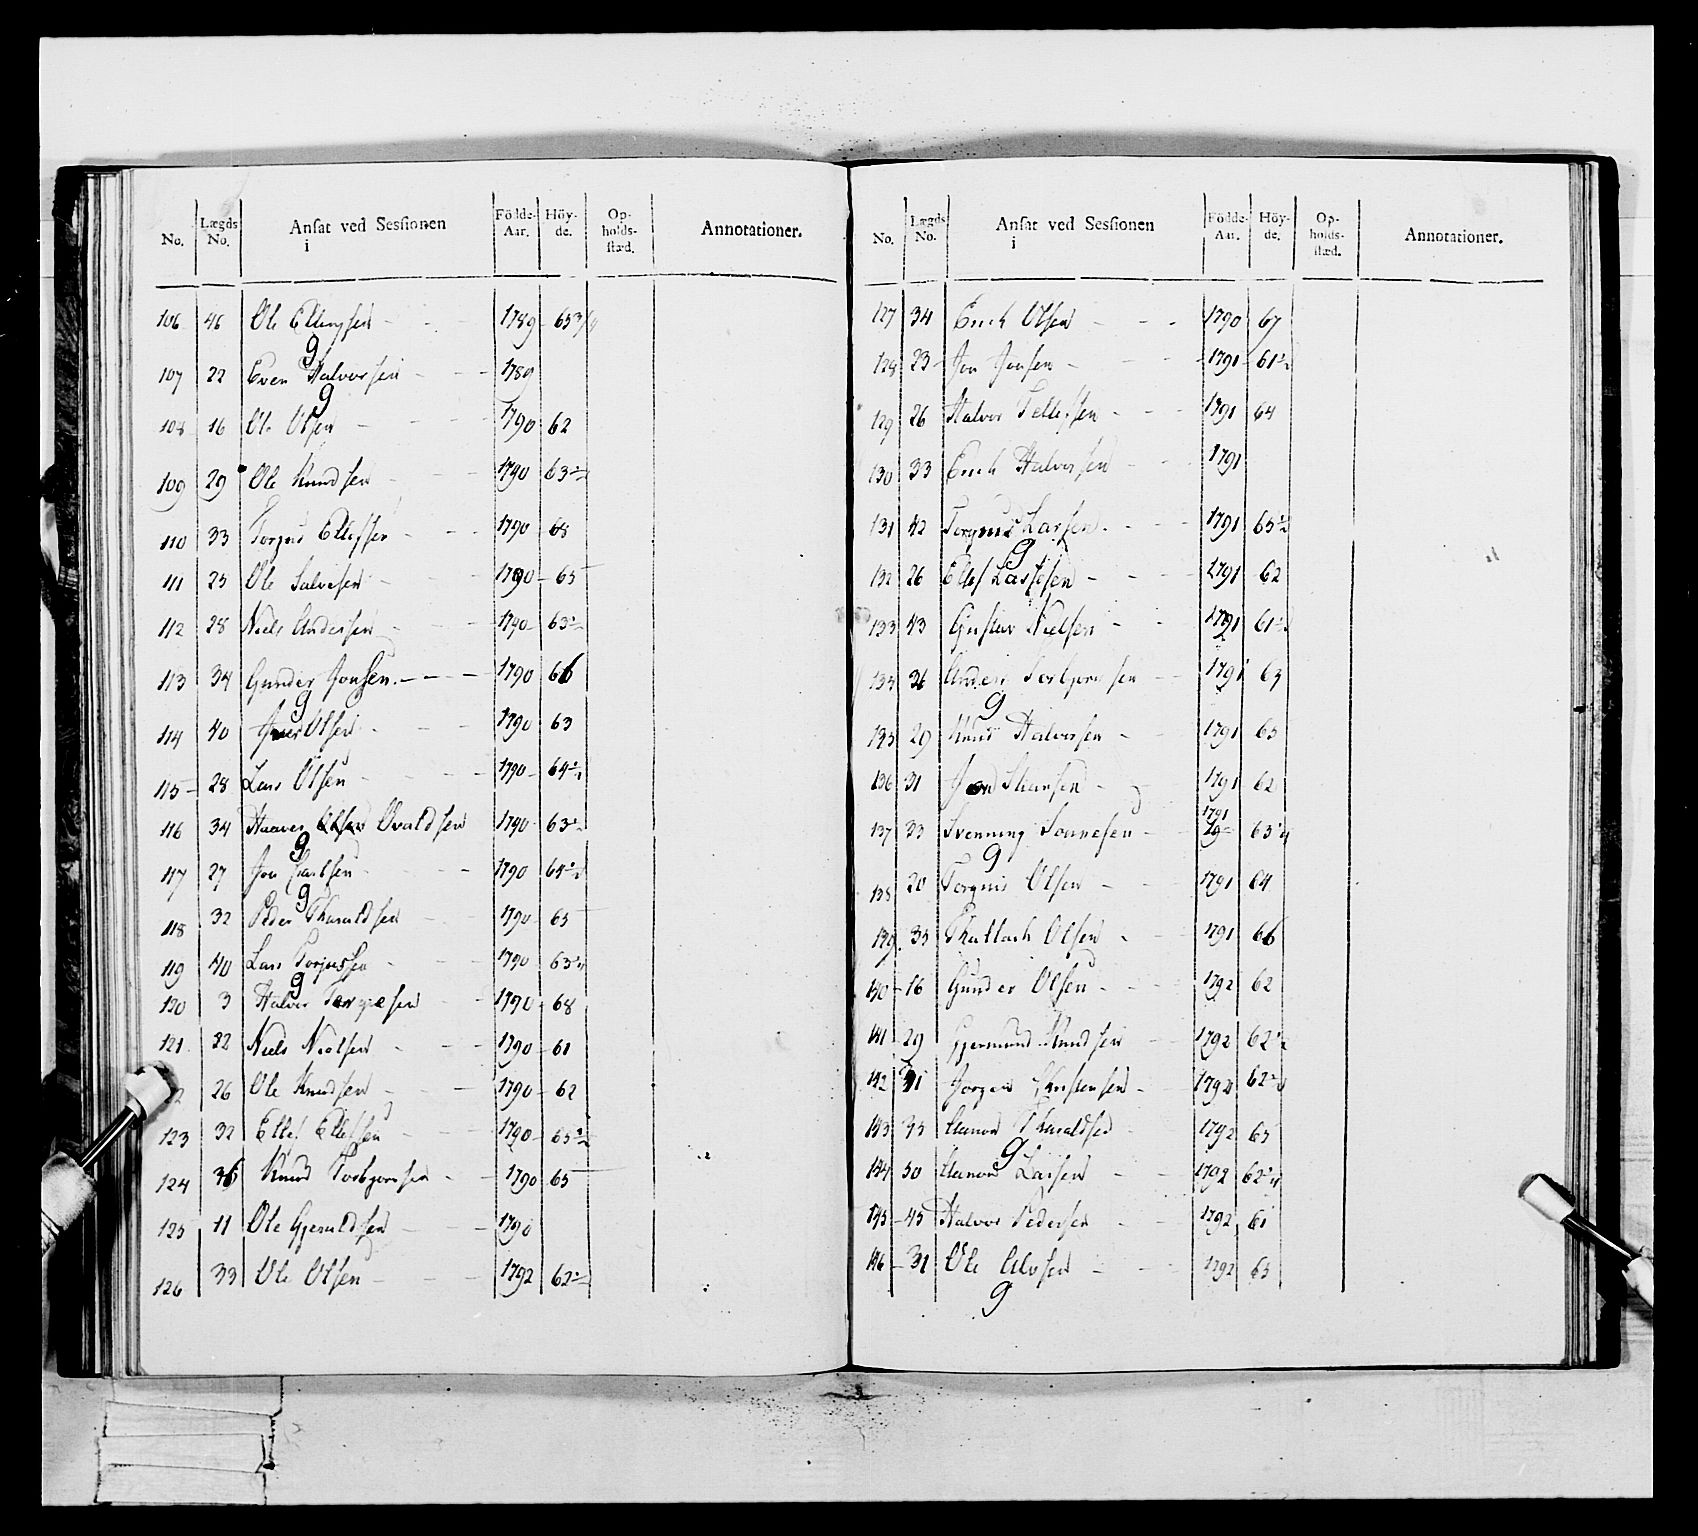 No. Lægds No. Ansat ved Sessionen i Födde-Aar. Höy-de. Op-holds-stæd. Annotationer.
106 46 Ole Ellingsen 1789 65 3/4
g
107 22 Even Halvorsen 1789
g
108 16 Ole Olsen 1790 62
109 29 Ole Knudsen 1790 63 1/2
110 33 Torjus Ellefsen 1790 68
111 25 Ole Salvesen 1790 65
112 28 Niels Andersen 1790 63 1/2
113 34 Gunder Jonsen 1790 66
g
114 40 Olsen 1790 63
115 28 Lars Olsen 1790 64 1/2
116 34 Haaver Olsen Ovaldsen 1790 63 1/2
g
117 27 Jon Carlsen 1790 64 1/2
g
118 32 Peder Tharaldsen 1790 65
119 40 Lars Torjussen 1790 63 1/4
g
120 3 Halvor Tergesen 1790 68
121 22 Niels Nielsen 1790 61
26 Ole Knudsen 1790 62
123 32 Ellef Ellefsen 1790 65 1/2
124 36 Knud Torbjornsen 1790 65
125 11 Ole Gjeruldsen 1790
126 33 Ole Olsen 1792 62 1/2
No. Lægds No. Ansat ved Sessionen i Födde-Aar. Höy-de. Op-holds-stæd. Annotationer.
127 34 Erich Olsen 1790 67
128 23 Jon Jonsen 1791 61 1/2
129 26 Halvor Tellefsen 1791 64
130 33 Erich Halvorsen 1791
131 42 Torgius Larsen 1791 65 1/2
g
132 26 Ellef Lassesen 1791 62
133 43 Gustav Nielsen 1791 61 1/2
135 26 Anders Torbjornsen 1791 63
g
135 29 Knud Halvorsen 1791 65
136 31 Jon Stiansen 1791 62
137 33 Svenning Sonnesen 1791 63 1/4
g
138 20 Torgius Olsen 1791 64
139 35 Thallach Olsen 1791 66
140 16 Gunder Olsen 1792 62
141 29 Gjermund Knudsen 1792 62 1/2
142 31 Jorgen Christensen 1792 62 1/4
143 45 Gunnar Tharaldsen 1792 65
g
144 30 Gunnar Larsen 1792 62 1/4
145 45 Halvor Pedersen 1792 61
146 31 Ole Alvsen 1792 65
g